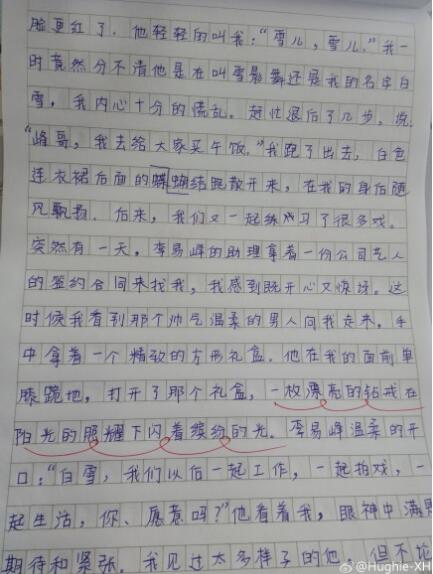 脸更红了。他轻轻的叫我:“雪儿,雪儿。”我一
时竟然分不清他是在叫雪影舞还是我的名字白
雪,我内心十分的慌乱。赶忙退后了几步,说:
“峰哥,我去给大家买午饭。”我跑了出去,白色
连衣裙后面的蝴蝶结跑散开来,在我的身后随
风飘扬。后来,我们又一起练习了很多戏。
突然有一天,李易峰的助理拿着一份公司艺人
的签约合同来找我,我感到既开心又惊讶。这
时候我看到那个帅气温柔的男人向我走来,手
中拿着一个精致的方形礼盒。他在我的面前单
膝跪地,打开了那个礼盒,一枚漂亮的钻戒在
阳光的照耀下闪着缤纷的光。李易峰温柔的开
口:“白雪,我们以后一起工作,一起拍戏,一
起生活,你、愿意吗?”他看着我,眼神中满是
期待和紧张。我见过太多样子的他,但不论
@Hughie-XH